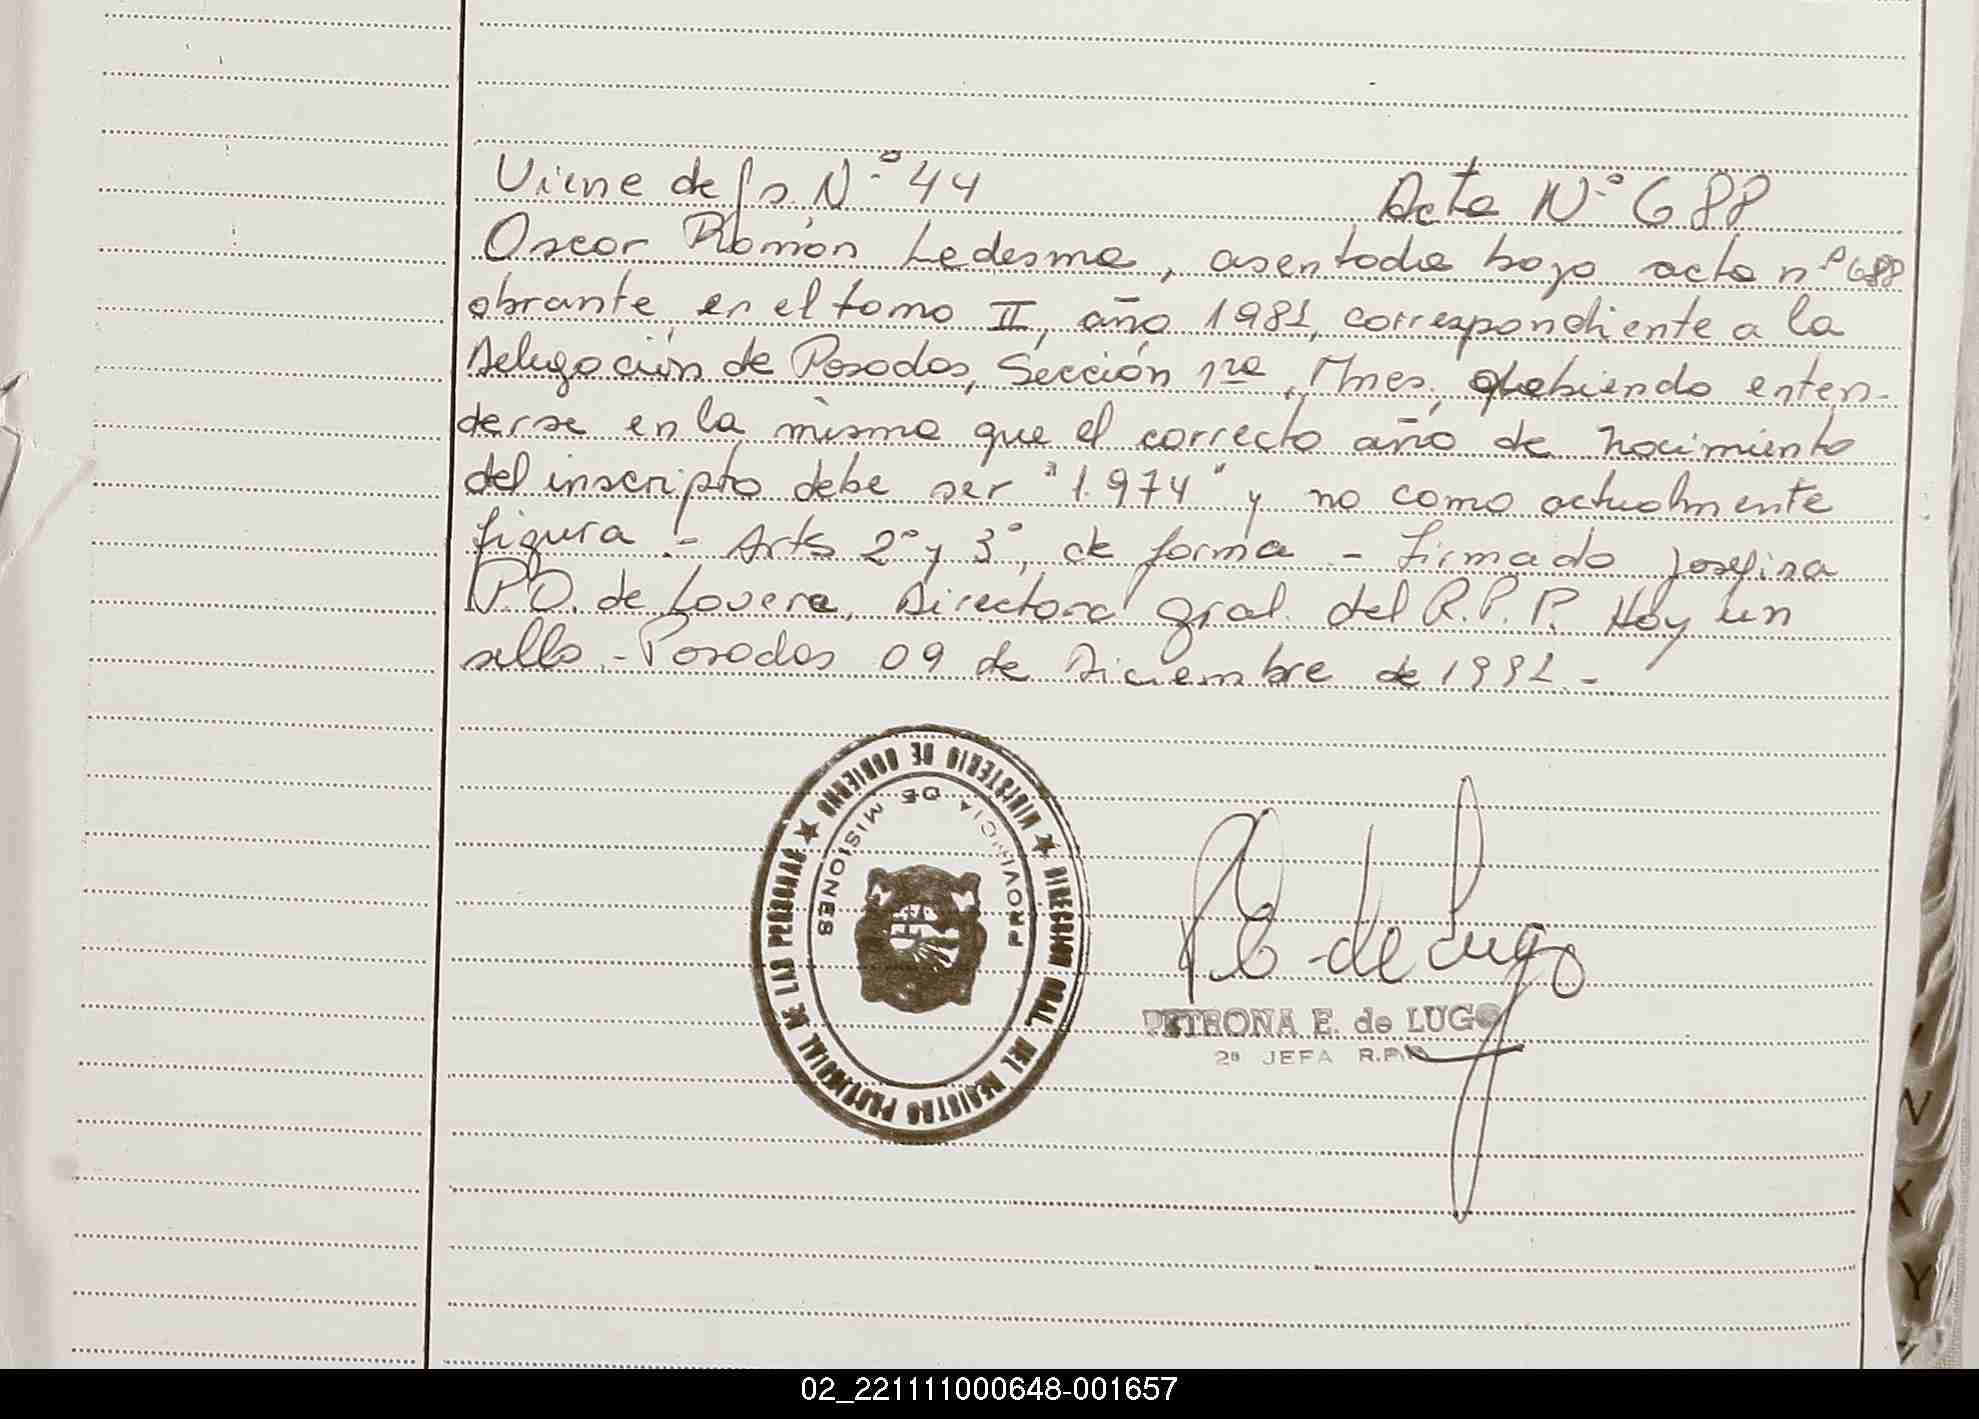 Viene de fs. N.º 44 Acta N.º 688
Oscar Ramón Ledesma, asentada bajo acta nº 688
obrante en el tomo II, año 1981, correspondiente a la
Delegación de Posadas, Sección 1ra, Mnes, debiendo enten-
derse en la misma que el correcto año de nacimiento
del inscripto debe ser "1.974" y no como actualmente
figura.- Arts 2º y 3º, de forma - Firmado Josefina
P.O. de Lovera, Directora Gral. del R.P.P. Hay un
sello.- Posadas 09 de Diciembre de 1991.-
MINISTERIO DE GOBIERNO ★ DIRECCION GRAL. DEL REGISTRO PROVINCIAL DE LAS PERSONAS ★
PROVINCIA DE MISIONES
P E de Lugo
PETRONA E. de LUGO
2ª JEFA R.P.P.
N
X
Y
02_221111000648-001657